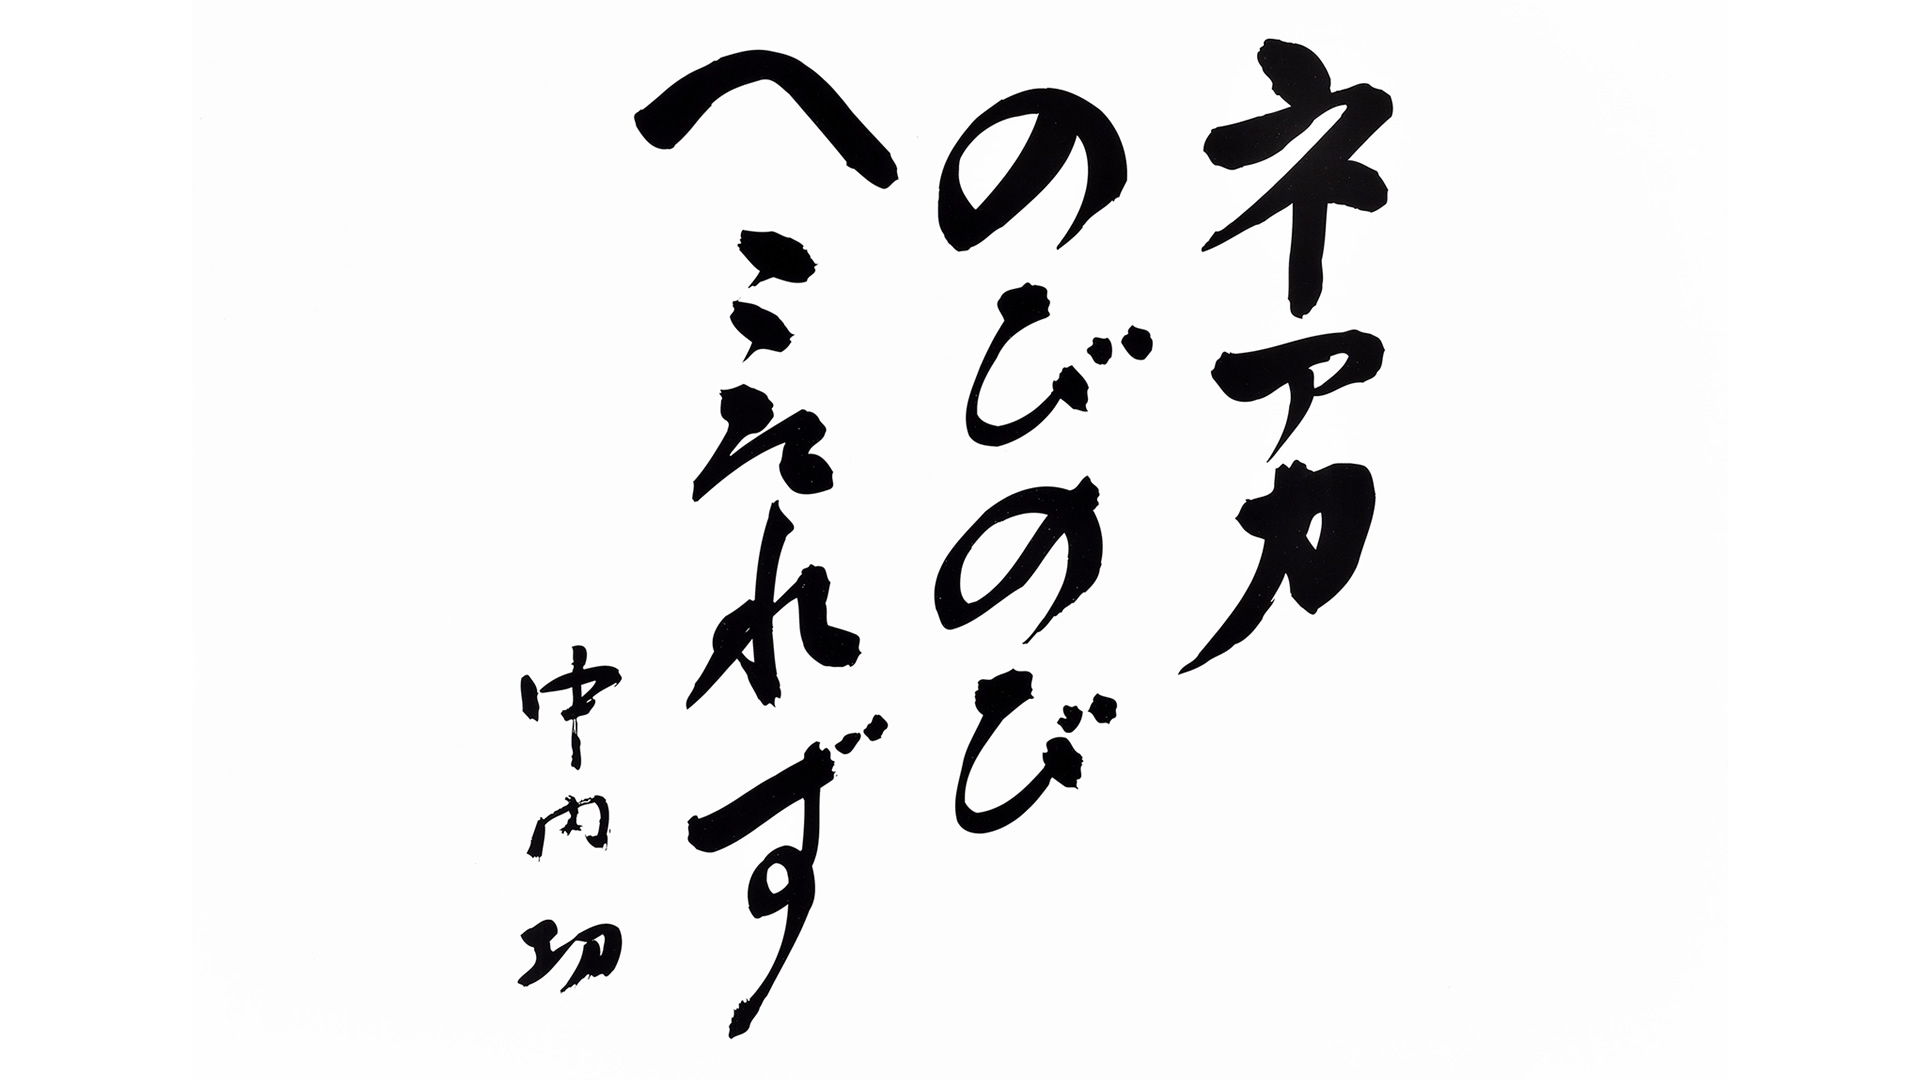 ネアカ
のびのび
へこたれず
中内功